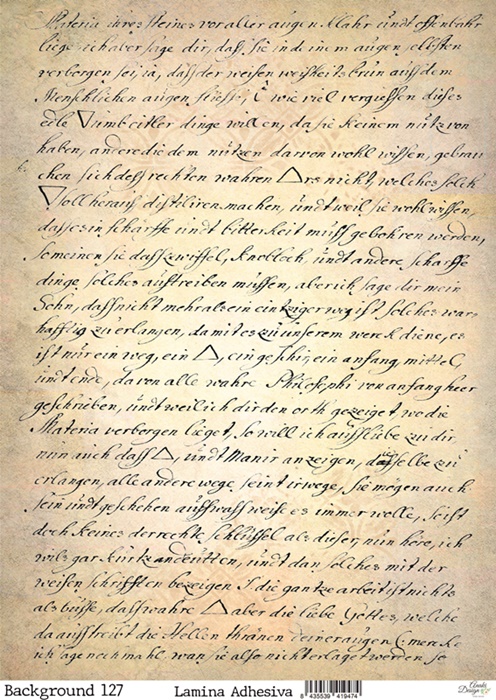 Materia ihres steines vor aller augen Klahr undt offenbahr
liege, ich aber sage dir, daß sie in deinem augen selbsten
verborgen sei, ja, daß der weisen weisheits brun auß dem
Menschlichen augen fliesse, wie viel vergiessen dieses
edle ▽ umb eitler dinge willen, da sie keinem nutz von
haben, andere die dem nutzen darvon wohl wissen, gebrau
chen sich deß rechten wahren △rs nicht, welches solch
▽ soll herauß distiliren machen, undt weil sie wohl wissen,
daß es in scharffe undt bitterkeit muß gebohren werden,
so meinen sie daß zwiffel, Knobloch, undt andere scharffe
dinge solches außtreiben müssen, aber ich sage dir mein
Sohn, daß nicht mehr als ein eintziger weg ist solches war
hafftig zu erlangen, damit es zu unserem werck diene, es
ist nur ein weg, ein △, ein geschir, ein anfang, mittel,
undt ende, davon alle wahre Philosophi von anfang heer
geschrieben, undt weil ich dir den orth gezeiget wo die
Materia verborgen lieget, so will ich auß liebe zu dir
nun auch daß △, undt Manir anzeigen, daßselbe zu
erlangen, alle andere wege seint irwege, sie mögen auch
sein undt geschehen auff waß weise es immer wolle, so ist
doch keines der rechte schlüssel als dieser, nun höre, ich
wils gar kurtz andeutten, undt dan solches mit der
weisen schrifften bezeigen die gantze arbeit ist nichts
als busse, daß wahre △ aber die liebe Gottes, welche
da außtreibt die Hellen thränen deiner augen (mercke
ich sage noch mahl, wan sie also nicht erlaget werden, so
Background 127
Lamina Adhesiva
8 435539 419474